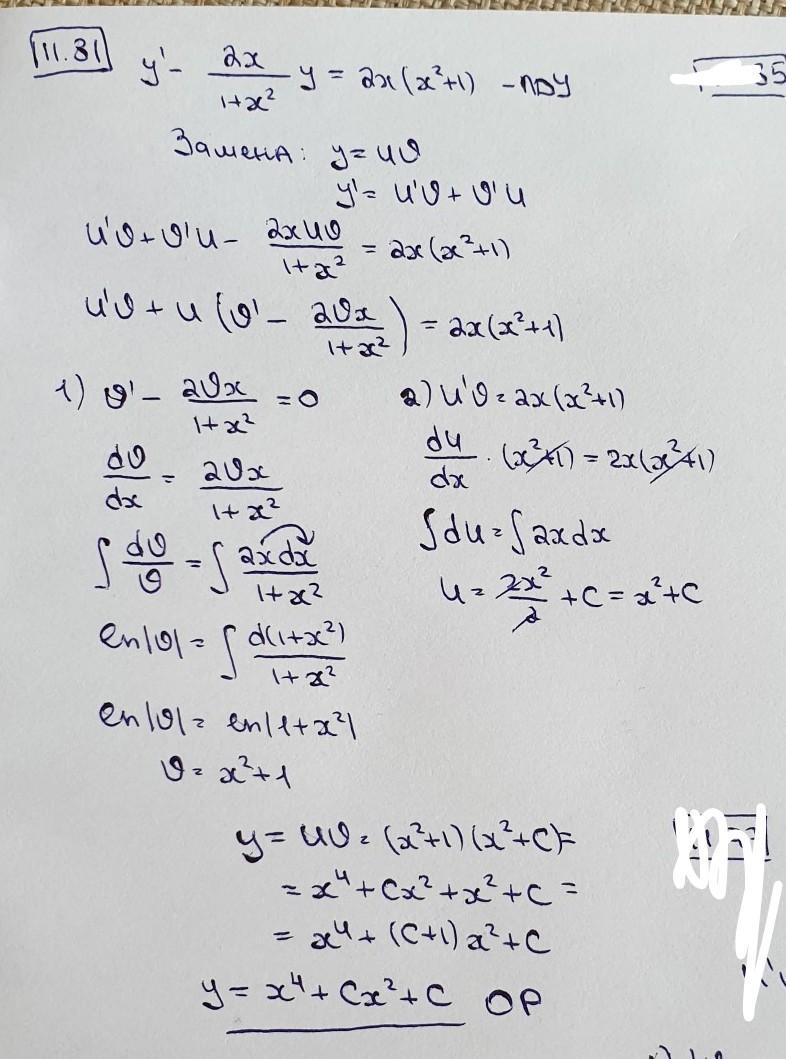 11.31 y' - 2x/(1+x²) y = 2x(x²+1) - ЛДУ
35
Замена: y = uv
y' = u'v + v'u
u'v + v'u - 2xuv/(1+x²) = 2x(x²+1)
u'v + u (v' - 2vx/(1+x²)) = 2x(x²+1)
1) v' - 2vx/(1+x²) = 0
dv/dx = 2vx/(1+x²)
∫ dv/v = ∫ 2xdx/(1+x²)
ln|v| = ∫ d(1+x²)/(1+x²)
ln|v| = ln|1+x²|
v = x²+1
2) u'v = 2x(x²+1)
du/dx · (x²+1) = 2x(x²+1)
∫du = ∫2xdx
u = 2x²/2 + C = x²+C
y = uv = (x²+1)(x²+C) =
= x⁴ + Cx² + x² + C =
= x⁴ + (C+1)x² + C
y = x⁴ + Cx² + C ОР